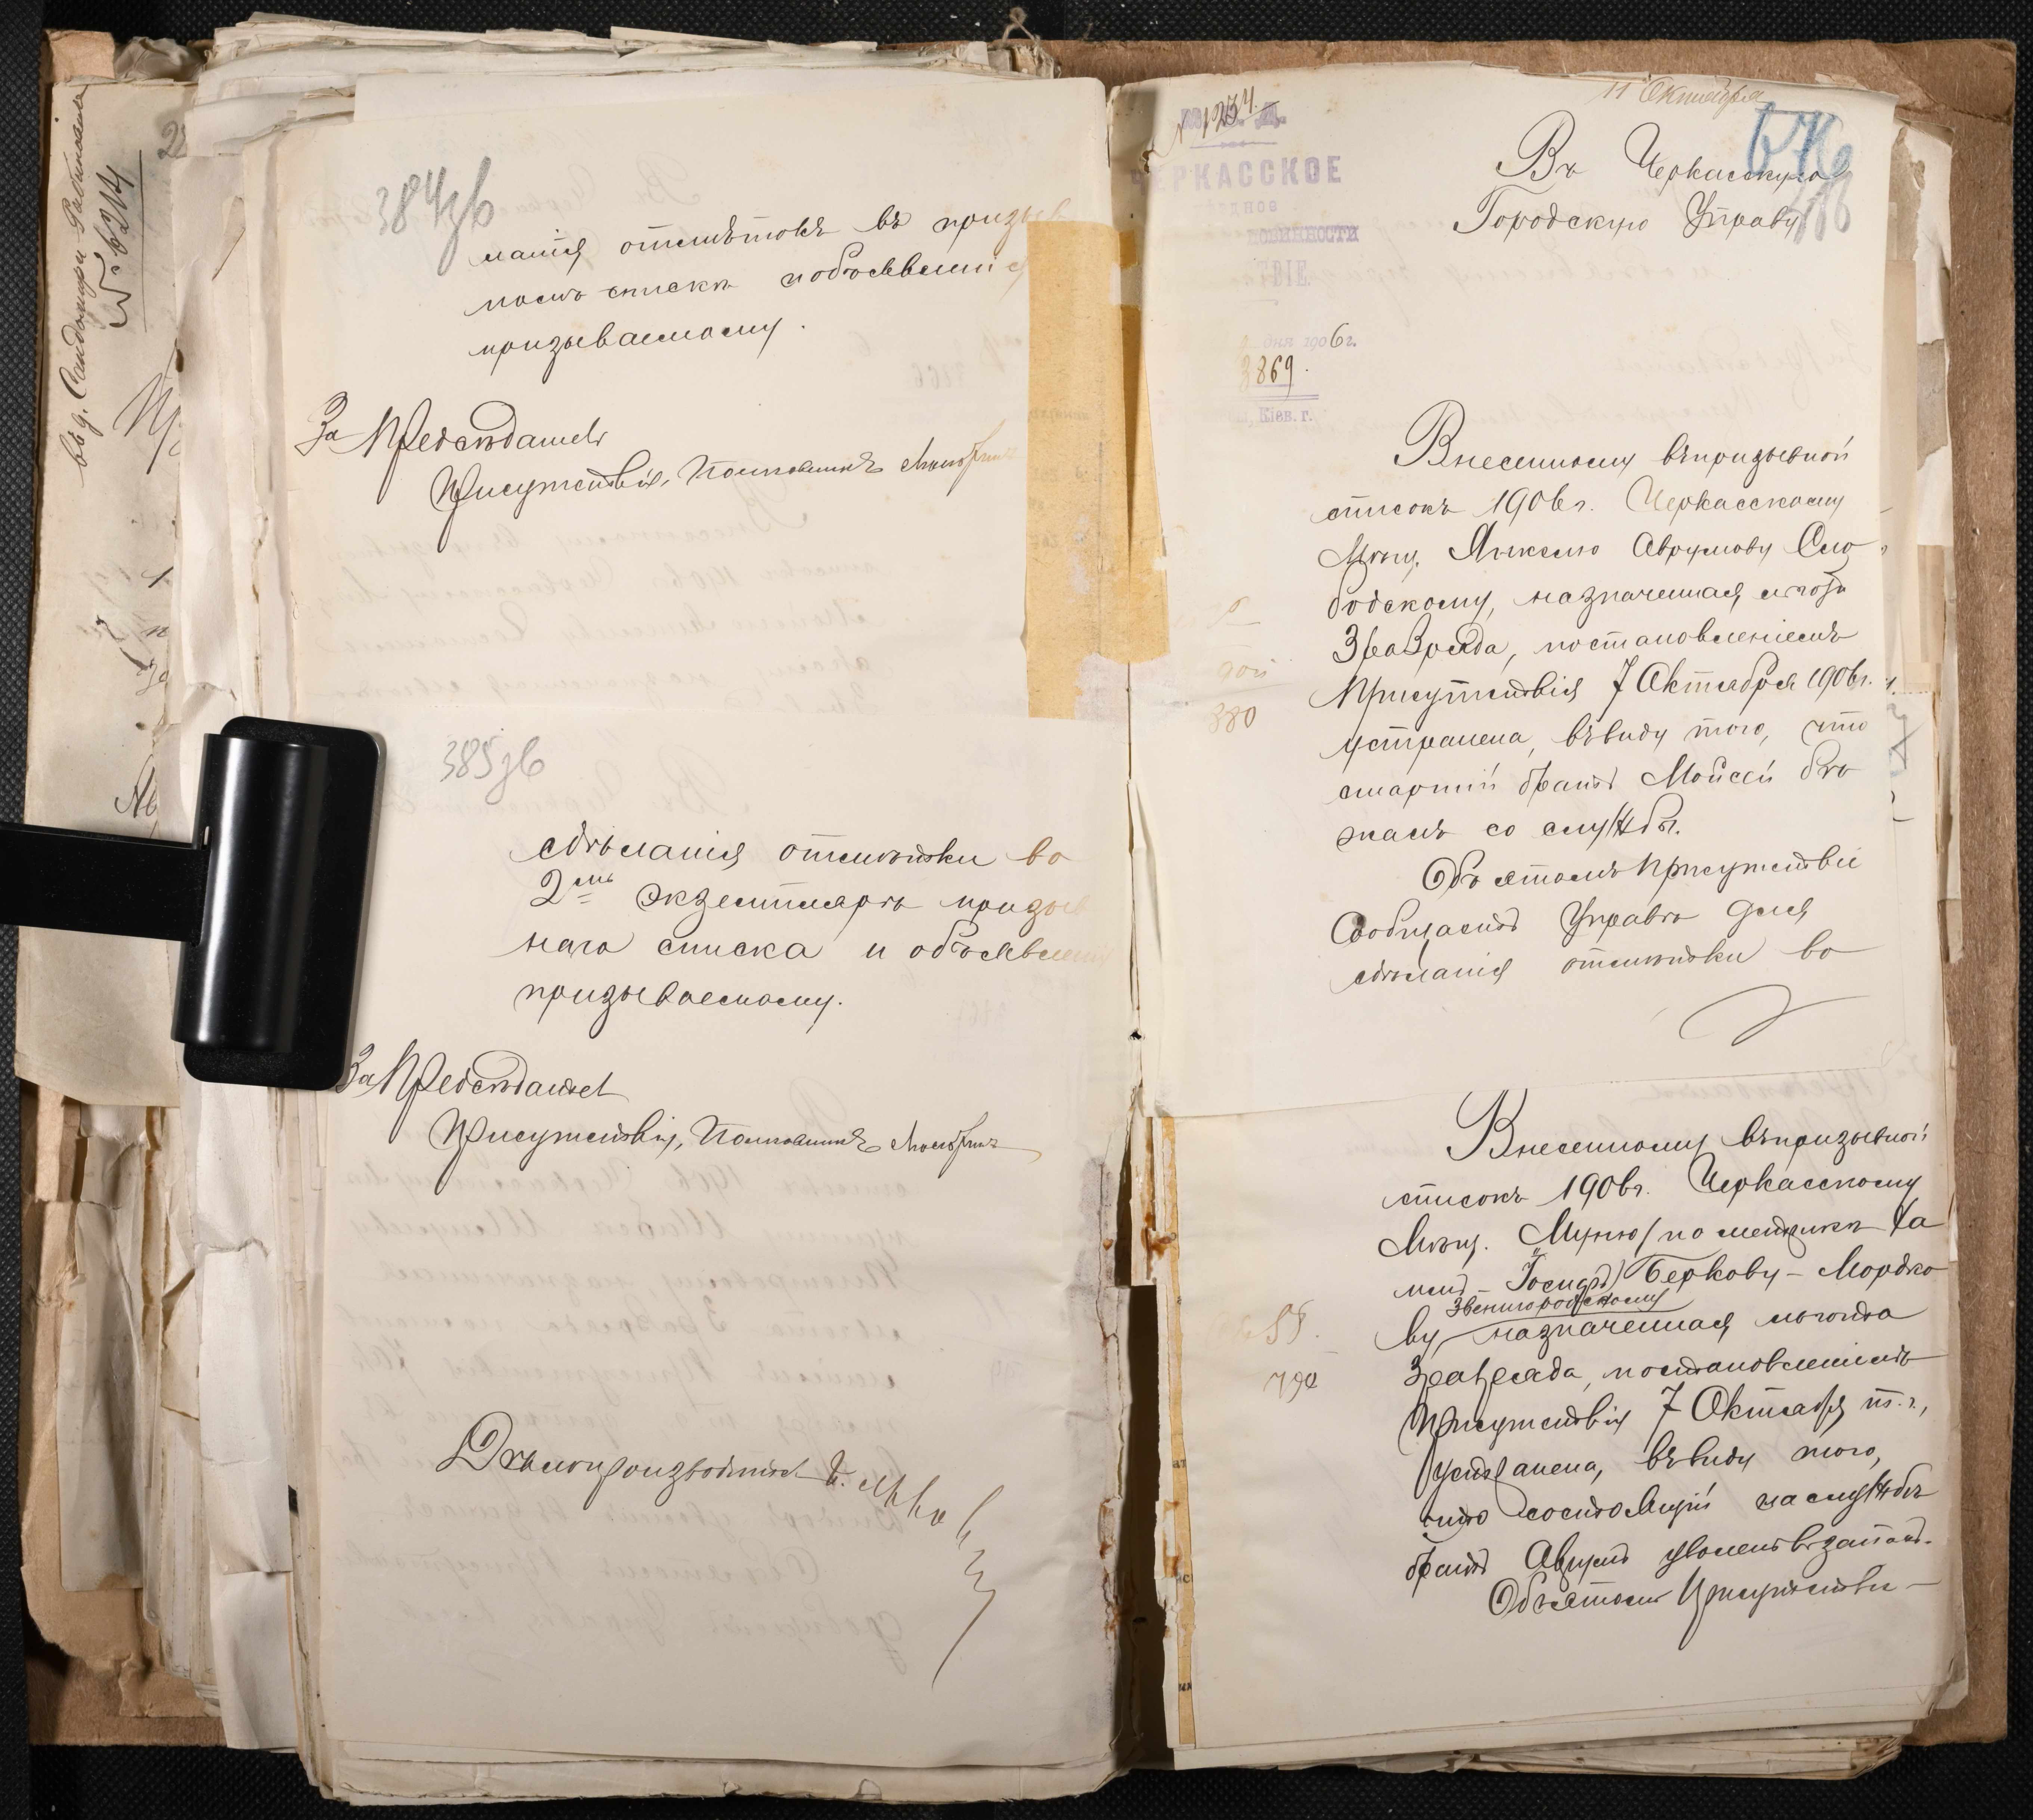 въ д. Сандомира Работника
№ 6214
384 зв
нація отмѣтокъ въ призыв
номъ спискѣ и объявленія
призываемому.
За Предсѣдателя
Присутствія, Полковникъ
385 зв
сдѣланія отмѣтки во
2мъ экземплярѣ призыв
наго списка и объявленія
призываемому.
За Предсѣдателя
Присутствія, Полковникъ
Дѣлопроизводитель
11 Октября
№ 1234.
ЧЕРКАССКОЕ
повинности
дня 1906 г.
3869.
Кіев. г.
Въ Черкасскую
Городскую Управу
Внесенному въ призывной
списокъ 1906 г. Черкасскому
Мѣщ. Янкелю Аврумову Сло
бодскому, назначенная льгота
3 разряда, постановленіемъ
Присутствія 7 Октября 1906 г.
устранена, въ виду того, что
старшій братъ Мойсей бѣ
жалъ со службы.
Объ этомъ Присутствіе
Сообщаетъ Управѣ для
сдѣланія отмѣтки во
380
Внесенному въ призывной
списокъ 1906 г. Черкасскому
Мѣщ. Муню (по метрикѣ На
Беркову-Мордко
Звенигородскому
ву назначенная льгота
3 разряда, постановленіемъ
Присутствія 7 Октября т. г.,
устранена, въ виду того,
что состоящій на службѣ
братъ Аврумъ уволенъ въ запасъ.
Объ этомъ Присутствіе
794